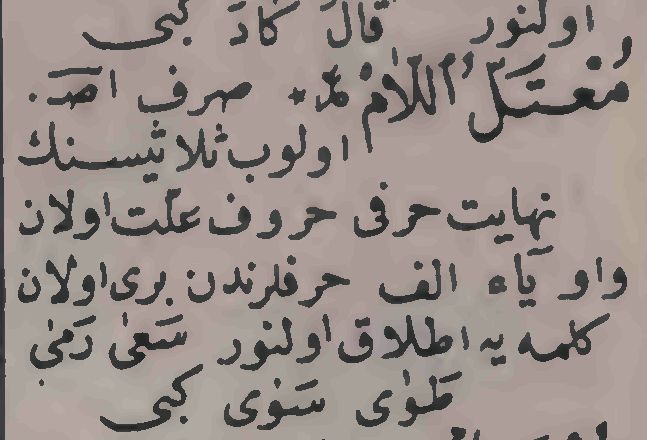 اولنور قَالَ كَادَ كبى
مُعْتَلُّ اللَّامْ صرف اصـ.
اولوب ثلاثيسنك
نهايت حرفى حروف علّت اولان
واو يَاء الف حرفلرندن برى اولان
كلمه يه اطلاق اولنور سَعىٰ رَمىٰ
طَوٰى سَوٰى كبى